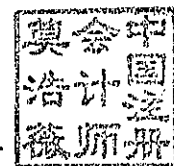 中国注册
会计师
奠浩薇